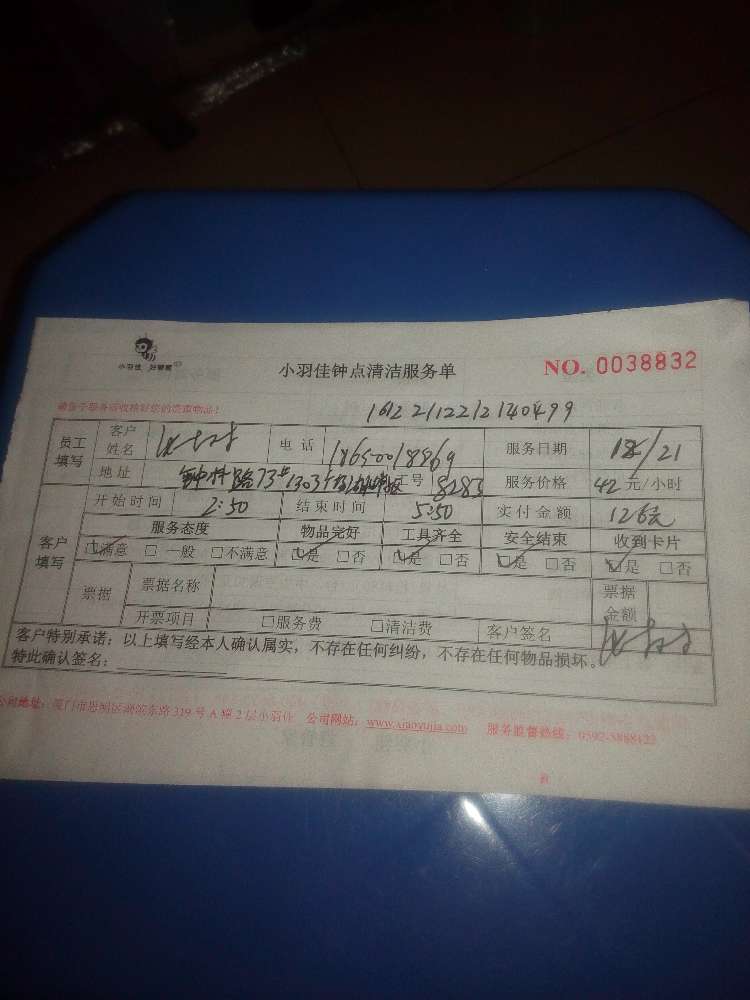 小羽佳 好管家
小羽佳钟点清洁服务单
NO. 0038832
请您于服务前收检好您的贵重物品!
16122112212140499
员工填写 客户姓名 电话 18650018869 服务日期 12/21
地址 73# 1303 工号 8283 服务价格 42 元/小时
客户填写 开始时间 2:50 结束时间 5:50 实付金额 126元
服务态度 物品完好 工具齐全 安全结束 收到卡片
☑满意 □一般 □不满意 ☑是 □否 ☑是 □否 ☑是 □否 ☑是 □否
票据 票据名称 票据金额
开票项目 □服务费 □清洁费 客户签名
客户特别承诺：以上填写经本人确认属实，不存在任何纠纷，不存在任何物品损坏。
特此确认签名：
公司地址：厦门市思明区湖滨东路319号A幢2层小羽佳 公司网站：www.xiaoyujia.com 服务监督热线：0592-5888122